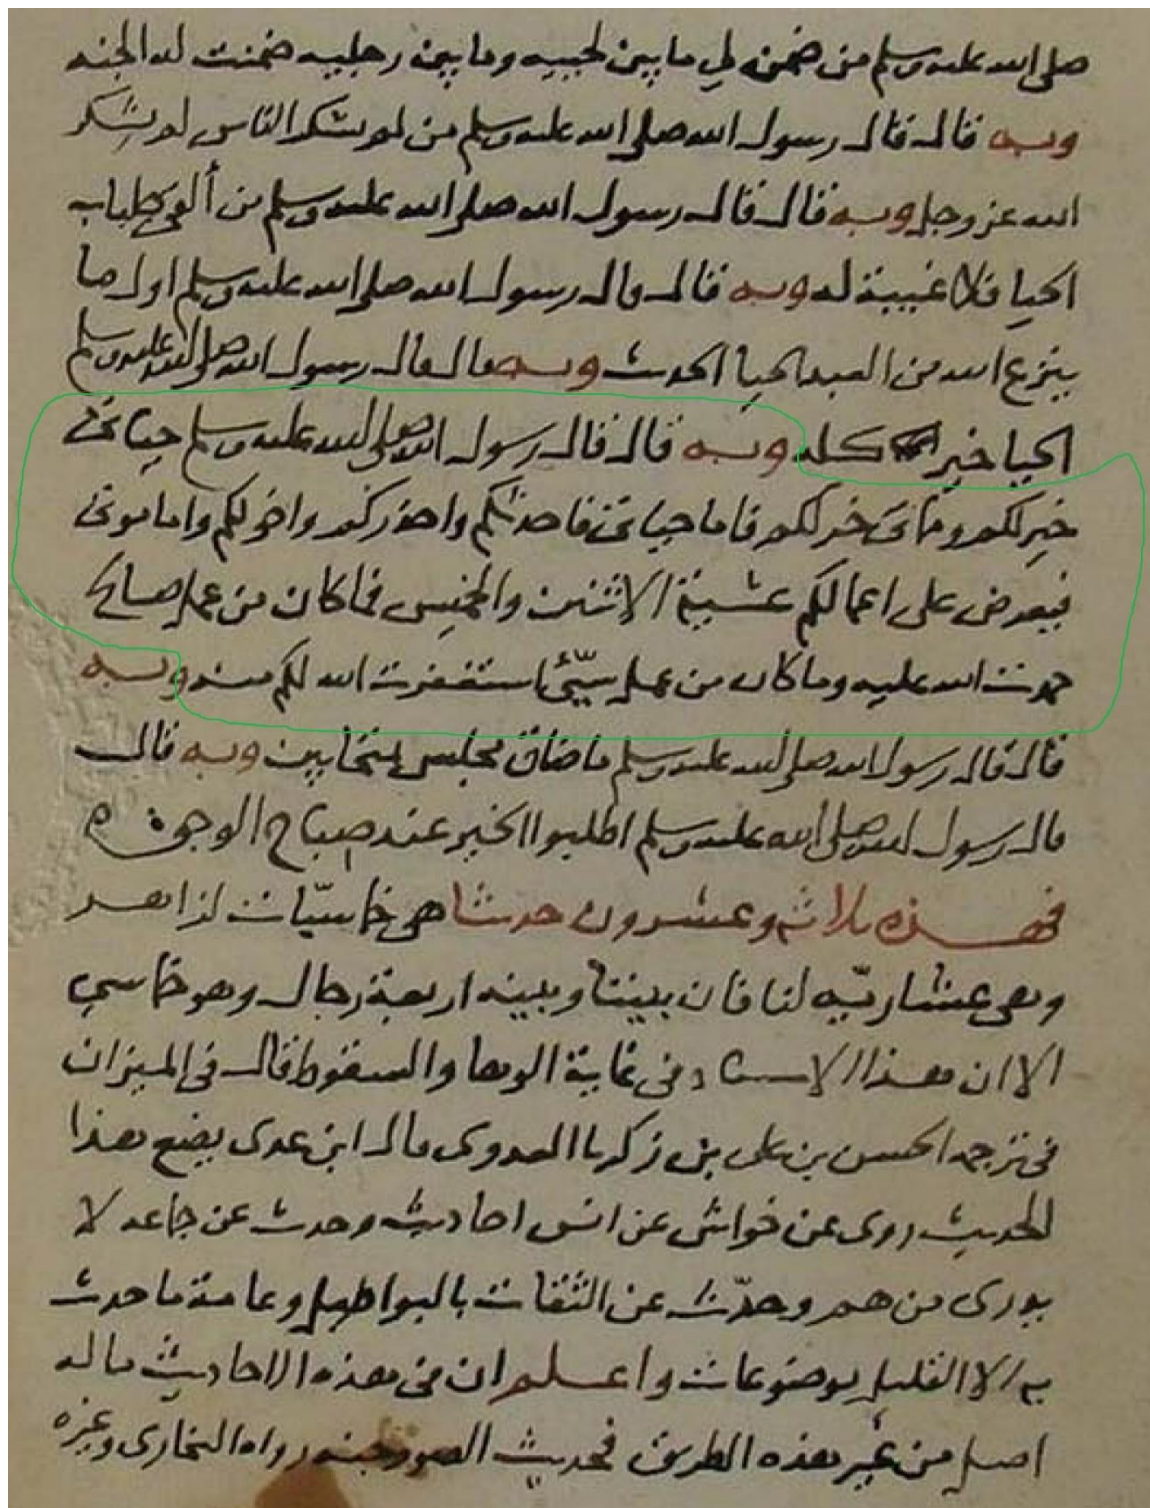 صلى الله عليه وسلم من ضمن لي ما بين لحييه وما بين رجليه ضمنت له الجنه
وبه قال قال رسول الله صلى الله عليه وسلم من لم يشكر الناس لم يشكر
الله عز وجل وبه قال قال رسول الله صلى الله عليه وسلم من ألقى جلباب
الحيا فلا غيبة له وبه قال قال رسول الله صلى الله عليه وسلم اول ما
ينزع الله من العبد الحيا الحدث وبه قال قال رسول الله صلى الله عليه وسلم
الحيا خير كله وبه قال قال رسول الله صلى الله عليه وسلم حياتى
خير لكم ومماتى خير لكم فاما حياتى فاحدثكم واحذركم واقولكم واما موتى
فيعرض على اعمالكم عشية الاثنين والخميس فما كان من عمل صالح
حمدت الله عليه وما كان من عمل سيّئ استغفرت الله لكم منه وبه
قال قال رسول الله صلى الله عليه وسلم ما ضاق مجلس بمتحابين وبه قال
قال رسول الله صلى الله عليه وسلم اطلبوا الخير عند صباح الوجوه ه
فهذه ثلاثة وعشرون حدثنا هى خماسيّات لزاهر
وهى عشاريّه لنا فان بيننا وبينه اربعة رجال وهو خماسي
الا ان هذا الاسناد فى غاية الوها والسقوط قال فى الميزان
فى ترجمه الحسن بن على بن زكريا العدوى قال ابن عدى يضع هذا
الحديث روى عن خراش عن انس احاديث وحدث عن جماعه لا
يدرى من هم وحدّث عن الثقات بالبواطيل وعامة ما حدث
به الا القليل موضوعات واعلم ان فى هذه الاحاديث ماله
اصل من غير هذه الطريق فحديث الصوم جنه رواه البخارى وغيره